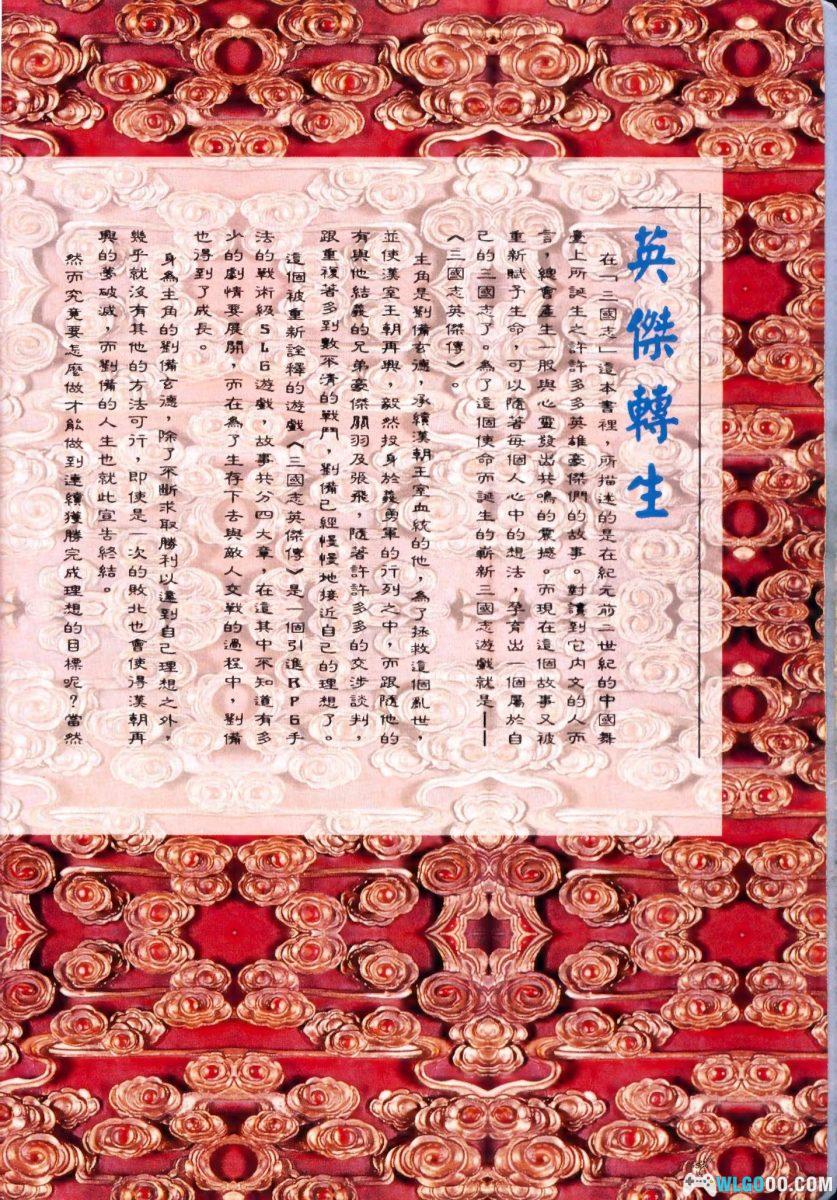 英傑轉生
在「三國志」這本書裡，所描述的是在紀元前二世紀的中國舞
臺上所誕生之許許多多英雄豪傑們的故事。對讀到它內文的人而
言，總會產生一股與心靈發出共鳴的震撼。而現在這個故事又被
重新賦予生命，可以隨著每個人心中的想法，孕育出一個屬於自
己的三國志了。為了這個使命而誕生的嶄新三國志遊戲就是——
《三國志英傑傳》。
主角是劉備玄德，承續漢朝王室血統的他，為了拯救這個亂世，
並使漢室王朝再興，毅然投身於義勇軍的行列之中，而跟隨他的
有與他結義的兄弟豪傑關羽及張飛，隨著許許多多的交涉談判，
跟重複著多到數不清的戰鬥，劉備已經慢慢地接近自己的理想了。
這個被重新詮釋的遊戲《三國志英傑傳》是一個引進RPG手
法的戰術級SLG遊戲，故事共分四大章，在這其中不知道有多
少的劇情要展開，而在為了生存下去與敵人交戰的過程中，劉備
也得到了成長。
身為主角的劉備玄德，除了不斷求取勝利以達到自己理想之外，
幾乎就沒有其他的方法可行，即使是一次的敗北也會使得漢朝再
興的夢破滅，而劉備的人生也就此宣告終結。
然而究竟要怎麼做才能做到連續獲勝完成理想的目標呢？當然
WLGOOO.COM